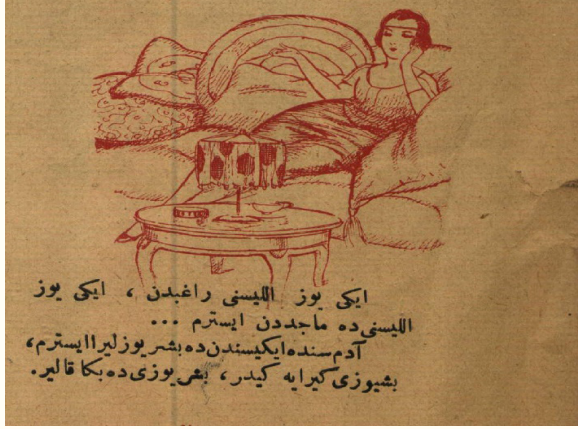 ایكی یوز اللیسنی راغبدن ، ایكی یوز
اللیسنی ده ماجددن ایسترم ...
آدم سنده ایكیسندن ده بشر یوز لیرا ایسترم،
بشیوزی كیرایه كیدر، بشیوزی ده بكا قالیر.